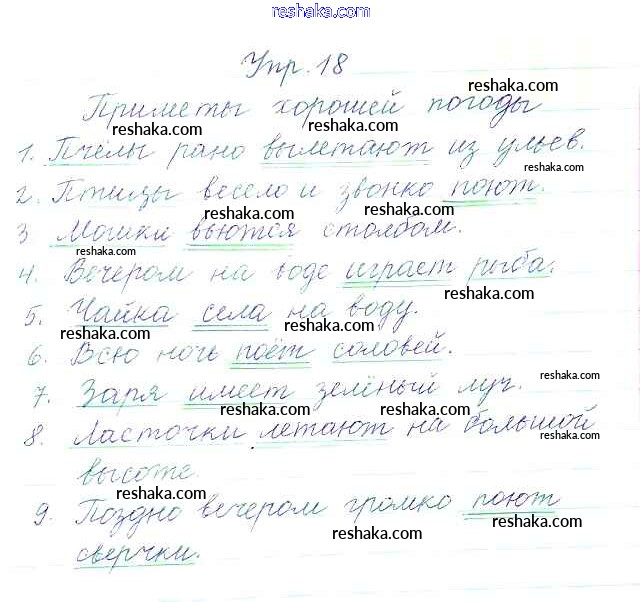 reshaka.com
Упр. 18
reshaka.com
Приметы хорошей погоды
reshaka.com reshaka.com reshaka.com
1. Пчёлы рано вылетают из ульев.
reshaka.com reshaka.com
2. Птицы весело и звонко поют.
reshaka.com reshaka.com
3 Мошки вьются столбом.
reshaka.com reshaka.com
4. Вечером на воде играет рыба.
reshaka.com
5. Чайка села на воду.
reshaka.com reshaka.com
6. Всю ночь поёт соловей.
reshaka.com
7. Заря имеет зелёный луч.
reshaka.com reshaka.com
8. Ласточки летают на большой
reshaka.com
высоте.
reshaka.com
9. Поздно вечером громко поют
reshaka.com reshaka.com
сверчки.